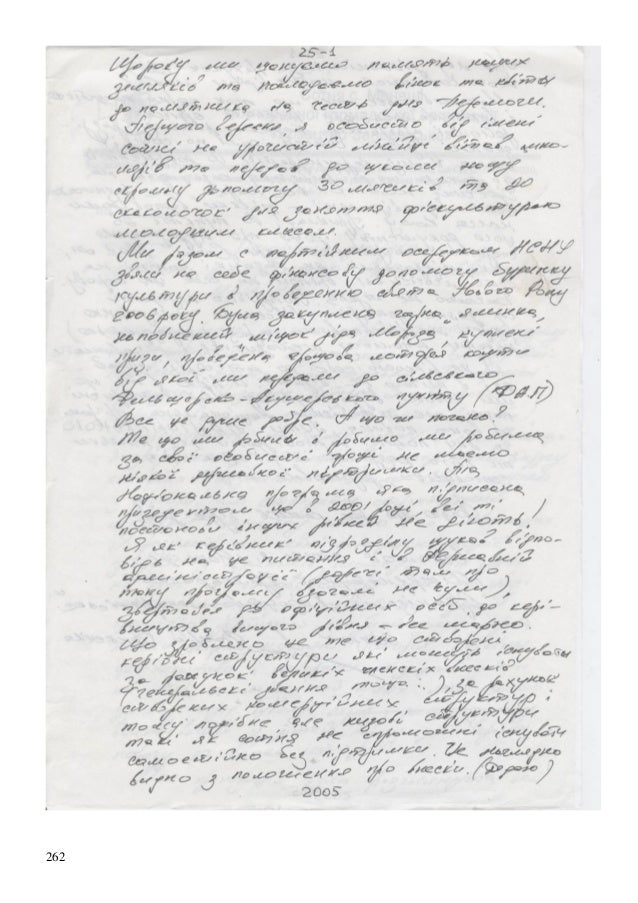 25-1
Щороку ми шануємо память наших
земляків та покладаємо вінок та квіти
до памятника на честь дня Перемоги.
Першого вересня, я особисто від імені
сотні на урочистій лінійці вітав шко-
лярів та передав до школи нашу
скромну допомогу 30 мячиків та 20
скакалочок для заняття фіскультурою
молодшим класам.
Ми разом с партійним осередком НСНУ
звяли на себе фінансову допомогу будинку
культури в проведенню свята Нового Року
2006 року. Була закуплена гарна ялинка,
наповнений мішок діда Мороза, куплені
призи, проведена грошова лотерея кошти
від якої ми передали до сільського
Фельшорско-Акушерського пункту (ФАП)
Все це дуже добре. А що ж погано?
Те що ми робили і робимо ми робимо
за свої особисті гроші не маємо
ніякої державної підтримки. Та
Національна програма яка підписана
президентом ще в 2001 році, всі ті
постанови інших рівней не діють!
Я як керівник підрозділу шукав відпо-
відь на це питання і в Державній
адміністрації (доречі там про
таку програму взагалі не чули),
звертався до офіційних осіб до кері-
вництва вищого рівня – все марно.
Що зроблено це те що створені
керівні структури які можуть існувати
за рахунок великіх членскіх внесків
(Генеральскі звання тоща..), за рахунок
створених комерційних структур і
тому подібне але низові структури
такі як сотня не спроможні існувати
самостійно без підтримки. Це наглядно
видно з положення про внески. (Додаю)
2005
262